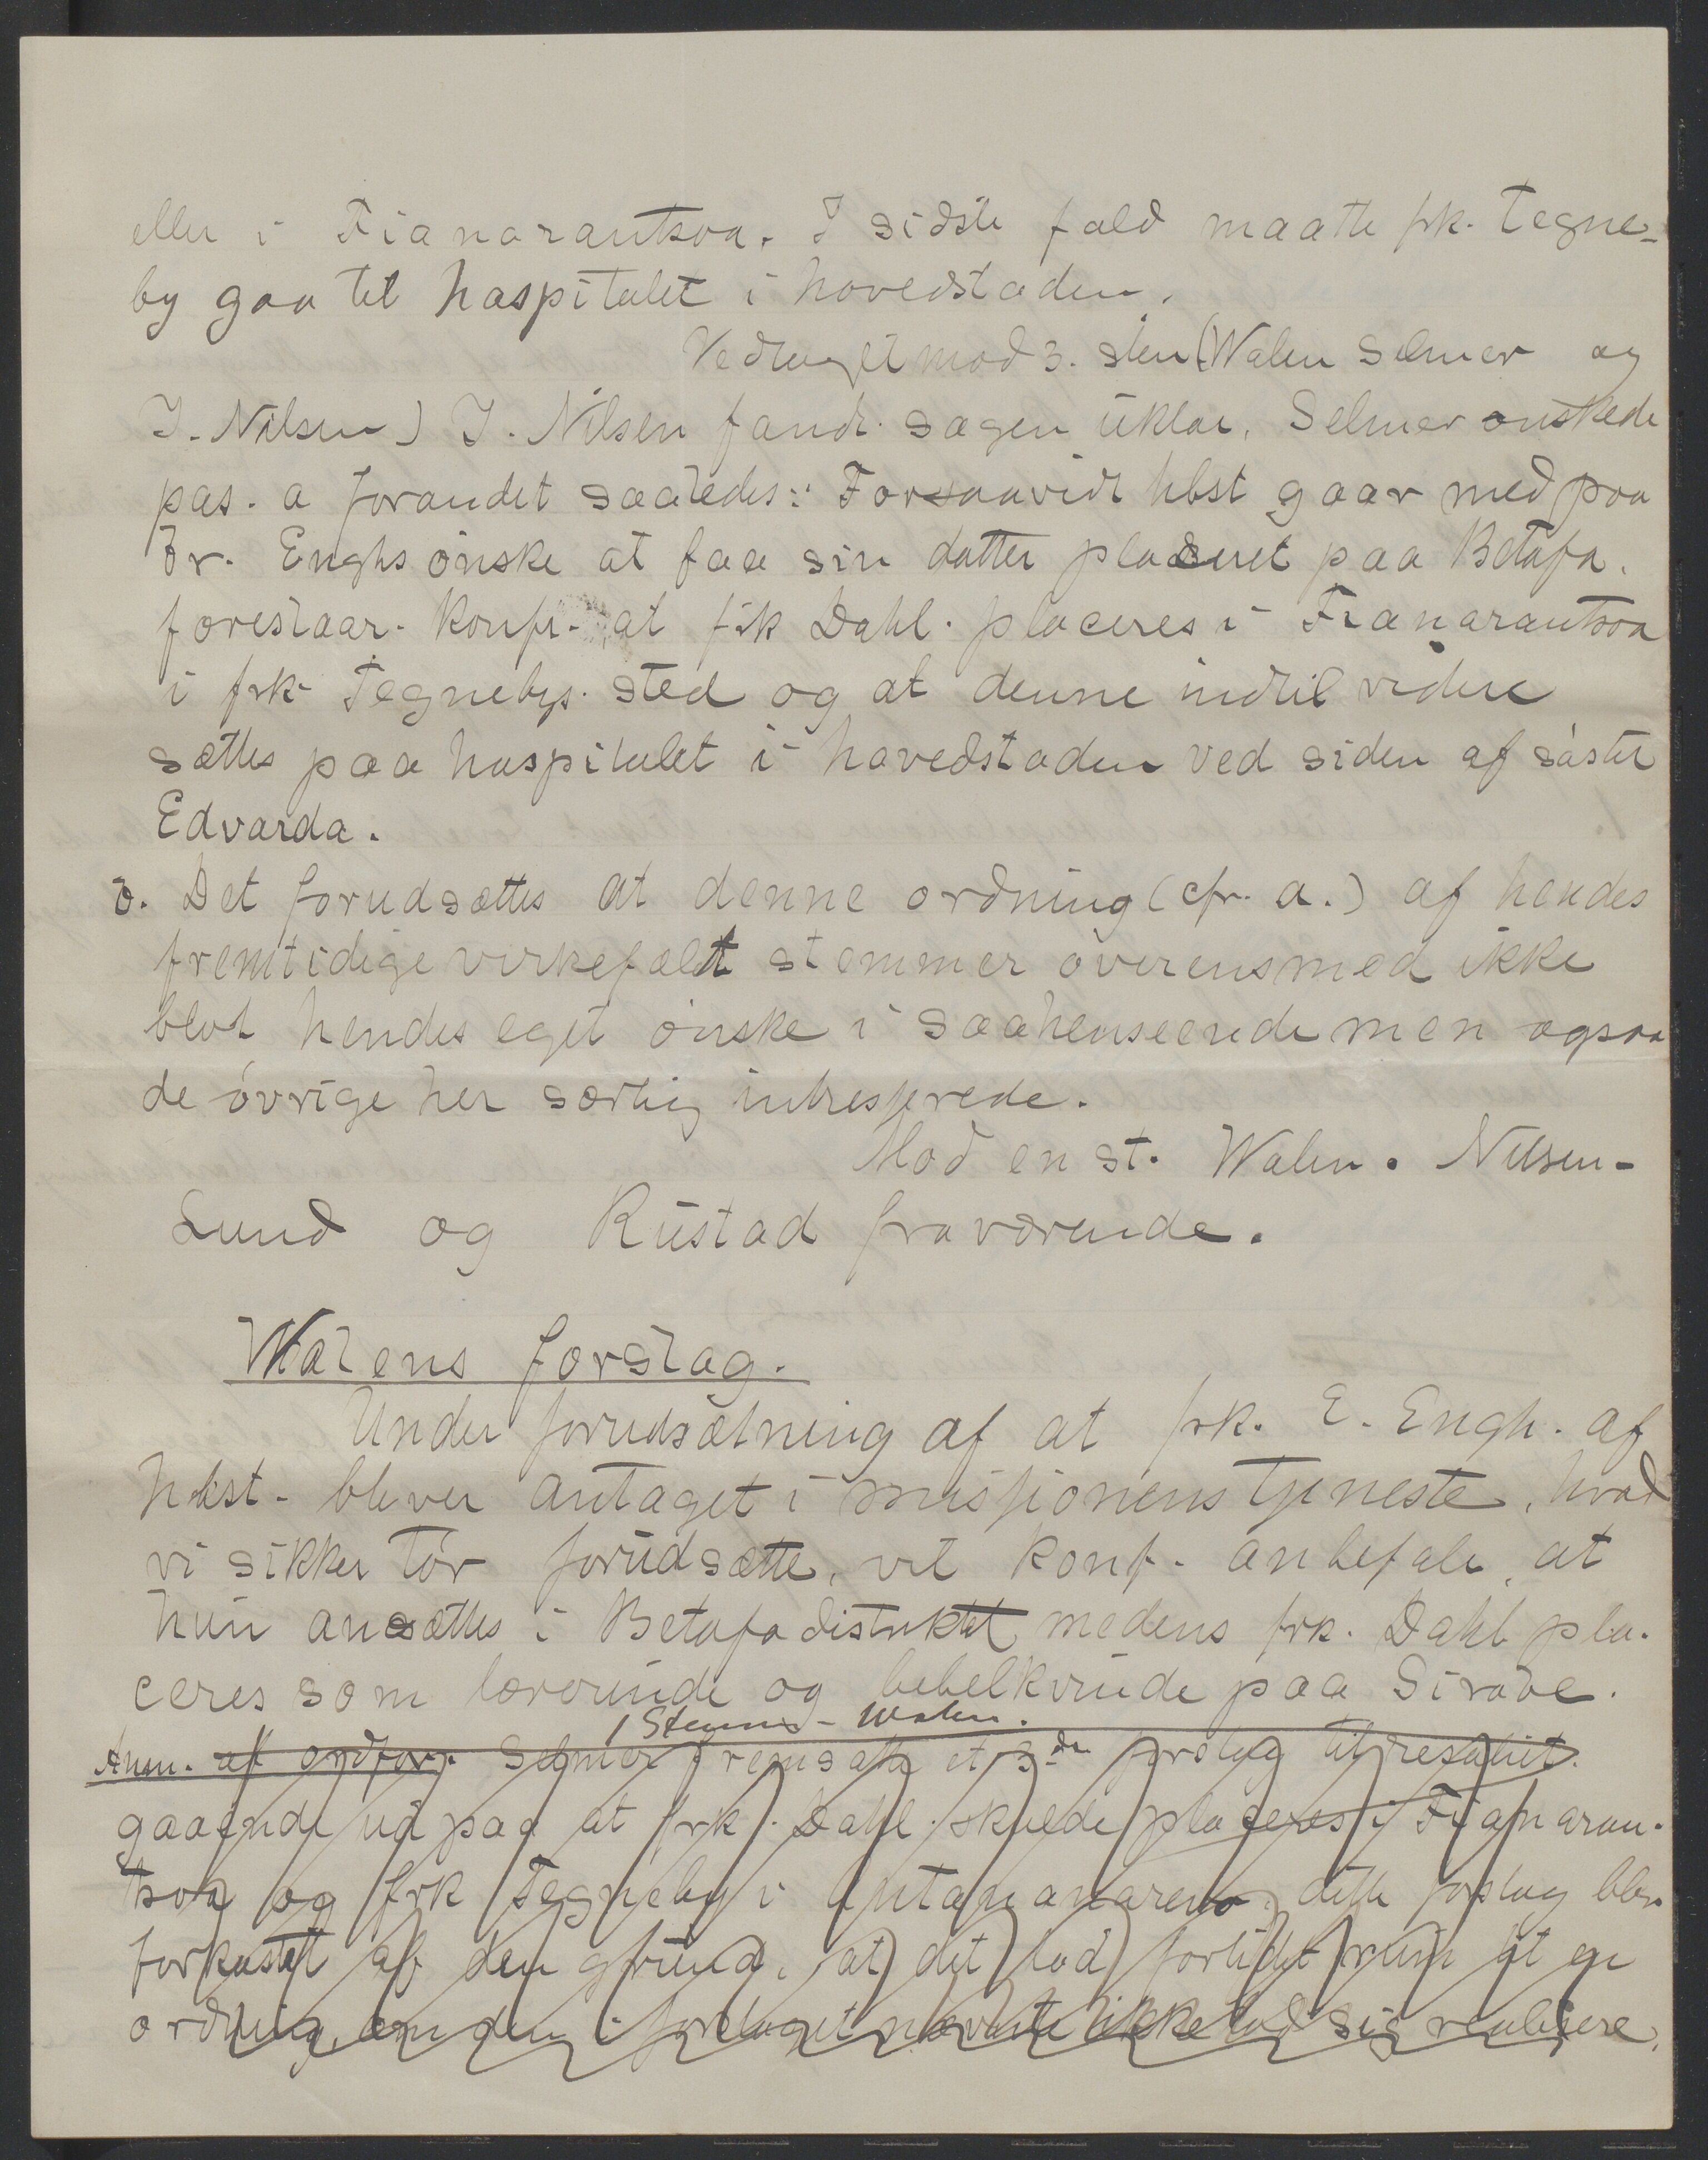 eller i Fianarantsoa. I sidste fald maatte frk. Tegne-
by gaa til hospitalet i hovedstaden.
Vedtaget mod 3. stem (Walen Selmer og
J. Nilsen) J. Nilsen fandt sagen uklar, Selmer ønskede
pas. a forandet saaledes: Forsaavidt hbst gaar med paa
br. Enghs ønske at faa sin datter placeret paa Betafo.
foreslaar konfr. at frk Dahl. placeres i Fianarantsoa
i frk Tegnebys sted og at denne indtil videre
sættes paa hospitalet i hovedstaden ved siden af søster
Edvarda.
b. Det forudsættes at denne ordning (cfr. a.) af hendes
fremtidige virkefælt stemmer overens med ikke
blot hendes eget ønske i saa henseende men ogsaa
de øvrige her særlig intresserede.
Mod en st. Walen. Nilsen-
Lund og Rustad fraværende.
Walens forslag.
Under forudsætning af at frk. E. Engh. af
hbst. bliver antaget i missionens tjeneste, hvad
vi sikker tør forudsætte, vil konf. anbefale, at
hun ansættes i Betafo distriktet medens frk. Dahl pla-
ceres som lærerinde og bibelkvinde paa Sirabe.
1 Stemme - Walen.
Anm. af ordfør. Selmer fremsatte et 3de forslag til resolut.
gaaende ud paa at frk. Dahl skulde placeres i Fianaran-
tsoa og frk Tegneby i Antananarivo, dette forslag blev
forkastet af den grund, at det lod forlidet rum til en
ordning, om den i forslaget nævnte ikke lod sig realisere.